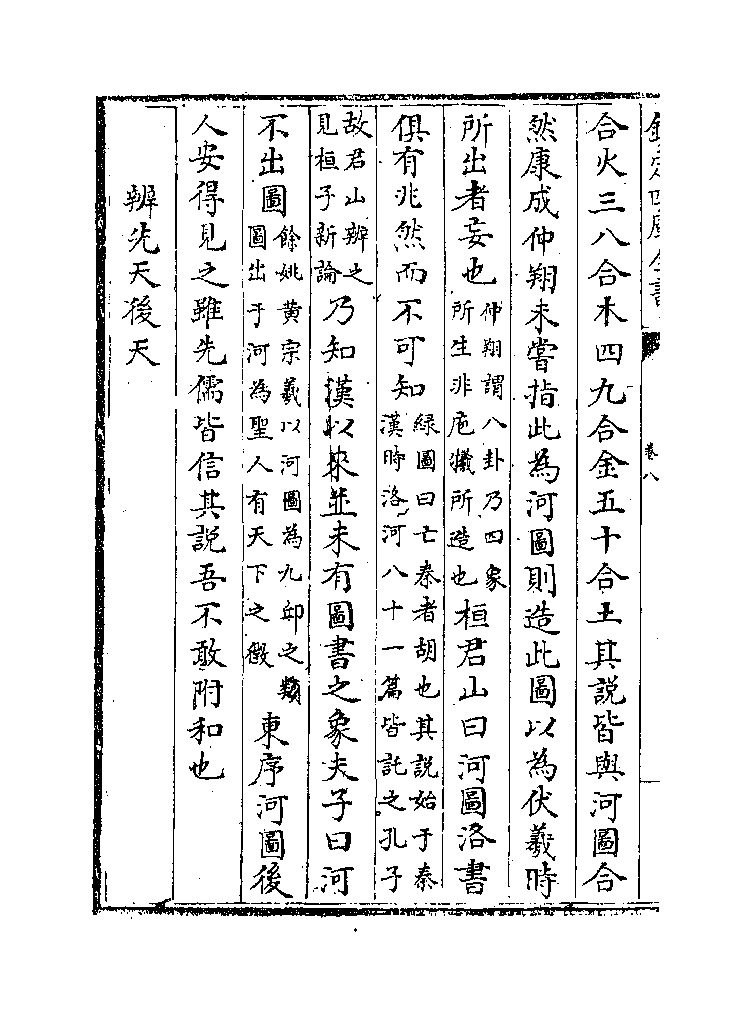 欽定四庫全書
卷八
合火三八合木四九合金五十合土其説皆與河圖合
然康成仲翔未嘗指此為河圖則造此圖以為伏羲時
所出者妄也仲翔謂八卦乃四象所生非庖犧所造也桓君山曰河圖洛書
俱有兆然而不可知緑圖曰亡秦者胡也其説始于秦漢時洛河八十一篇皆託之孔子
故君山辨之見桓子新論乃知漢以來並未有圖書之象夫子曰河
不出圖餘姚黄宗羲以河圖為九邱之類圖出于河為聖人有天下之徴東序河圖後
人安得見之雖先儒皆信其説吾不敢附和也
辨先天後天